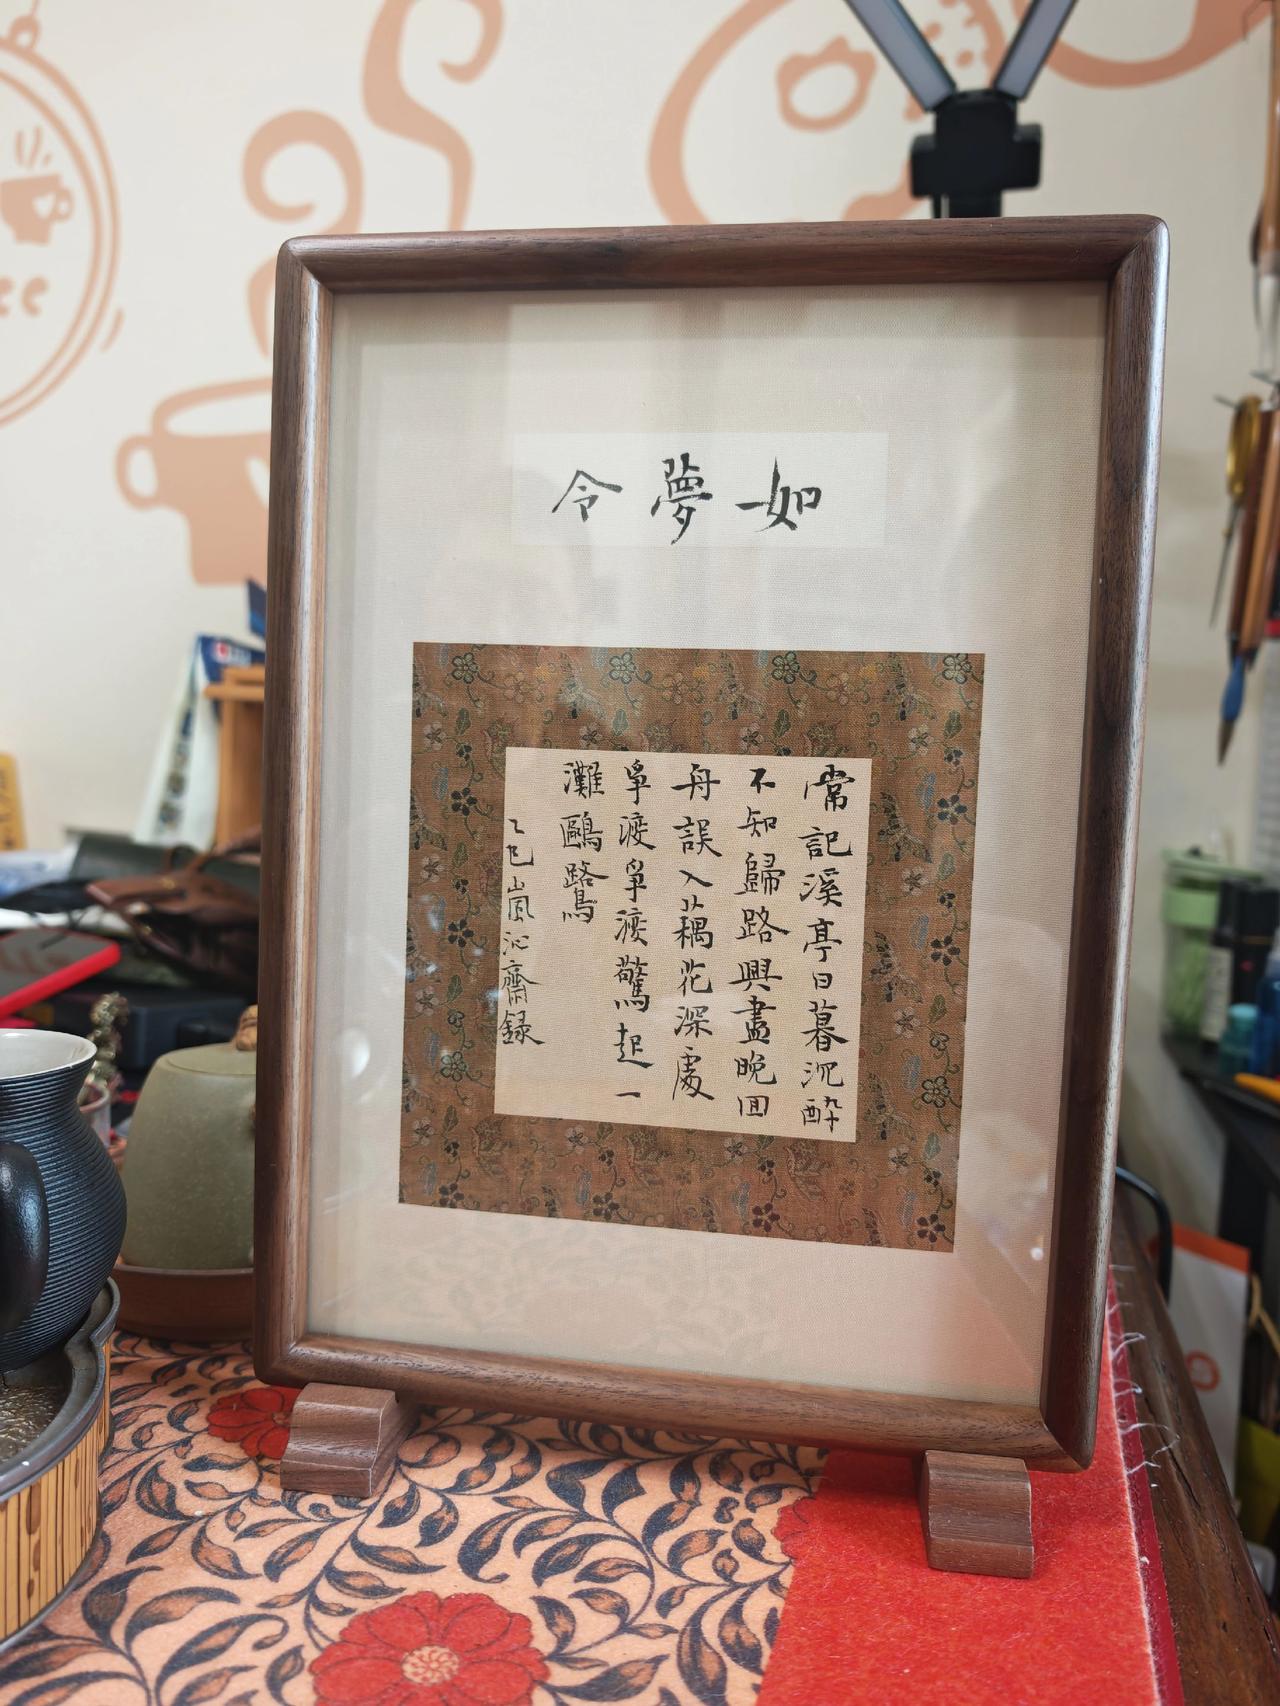 如夢令
常記溪亭日暮沉醉
不知歸路興盡晚回
舟誤入藕花深處
爭渡爭渡驚起一
灘鷗鷺
乙巳嵐沁齋録